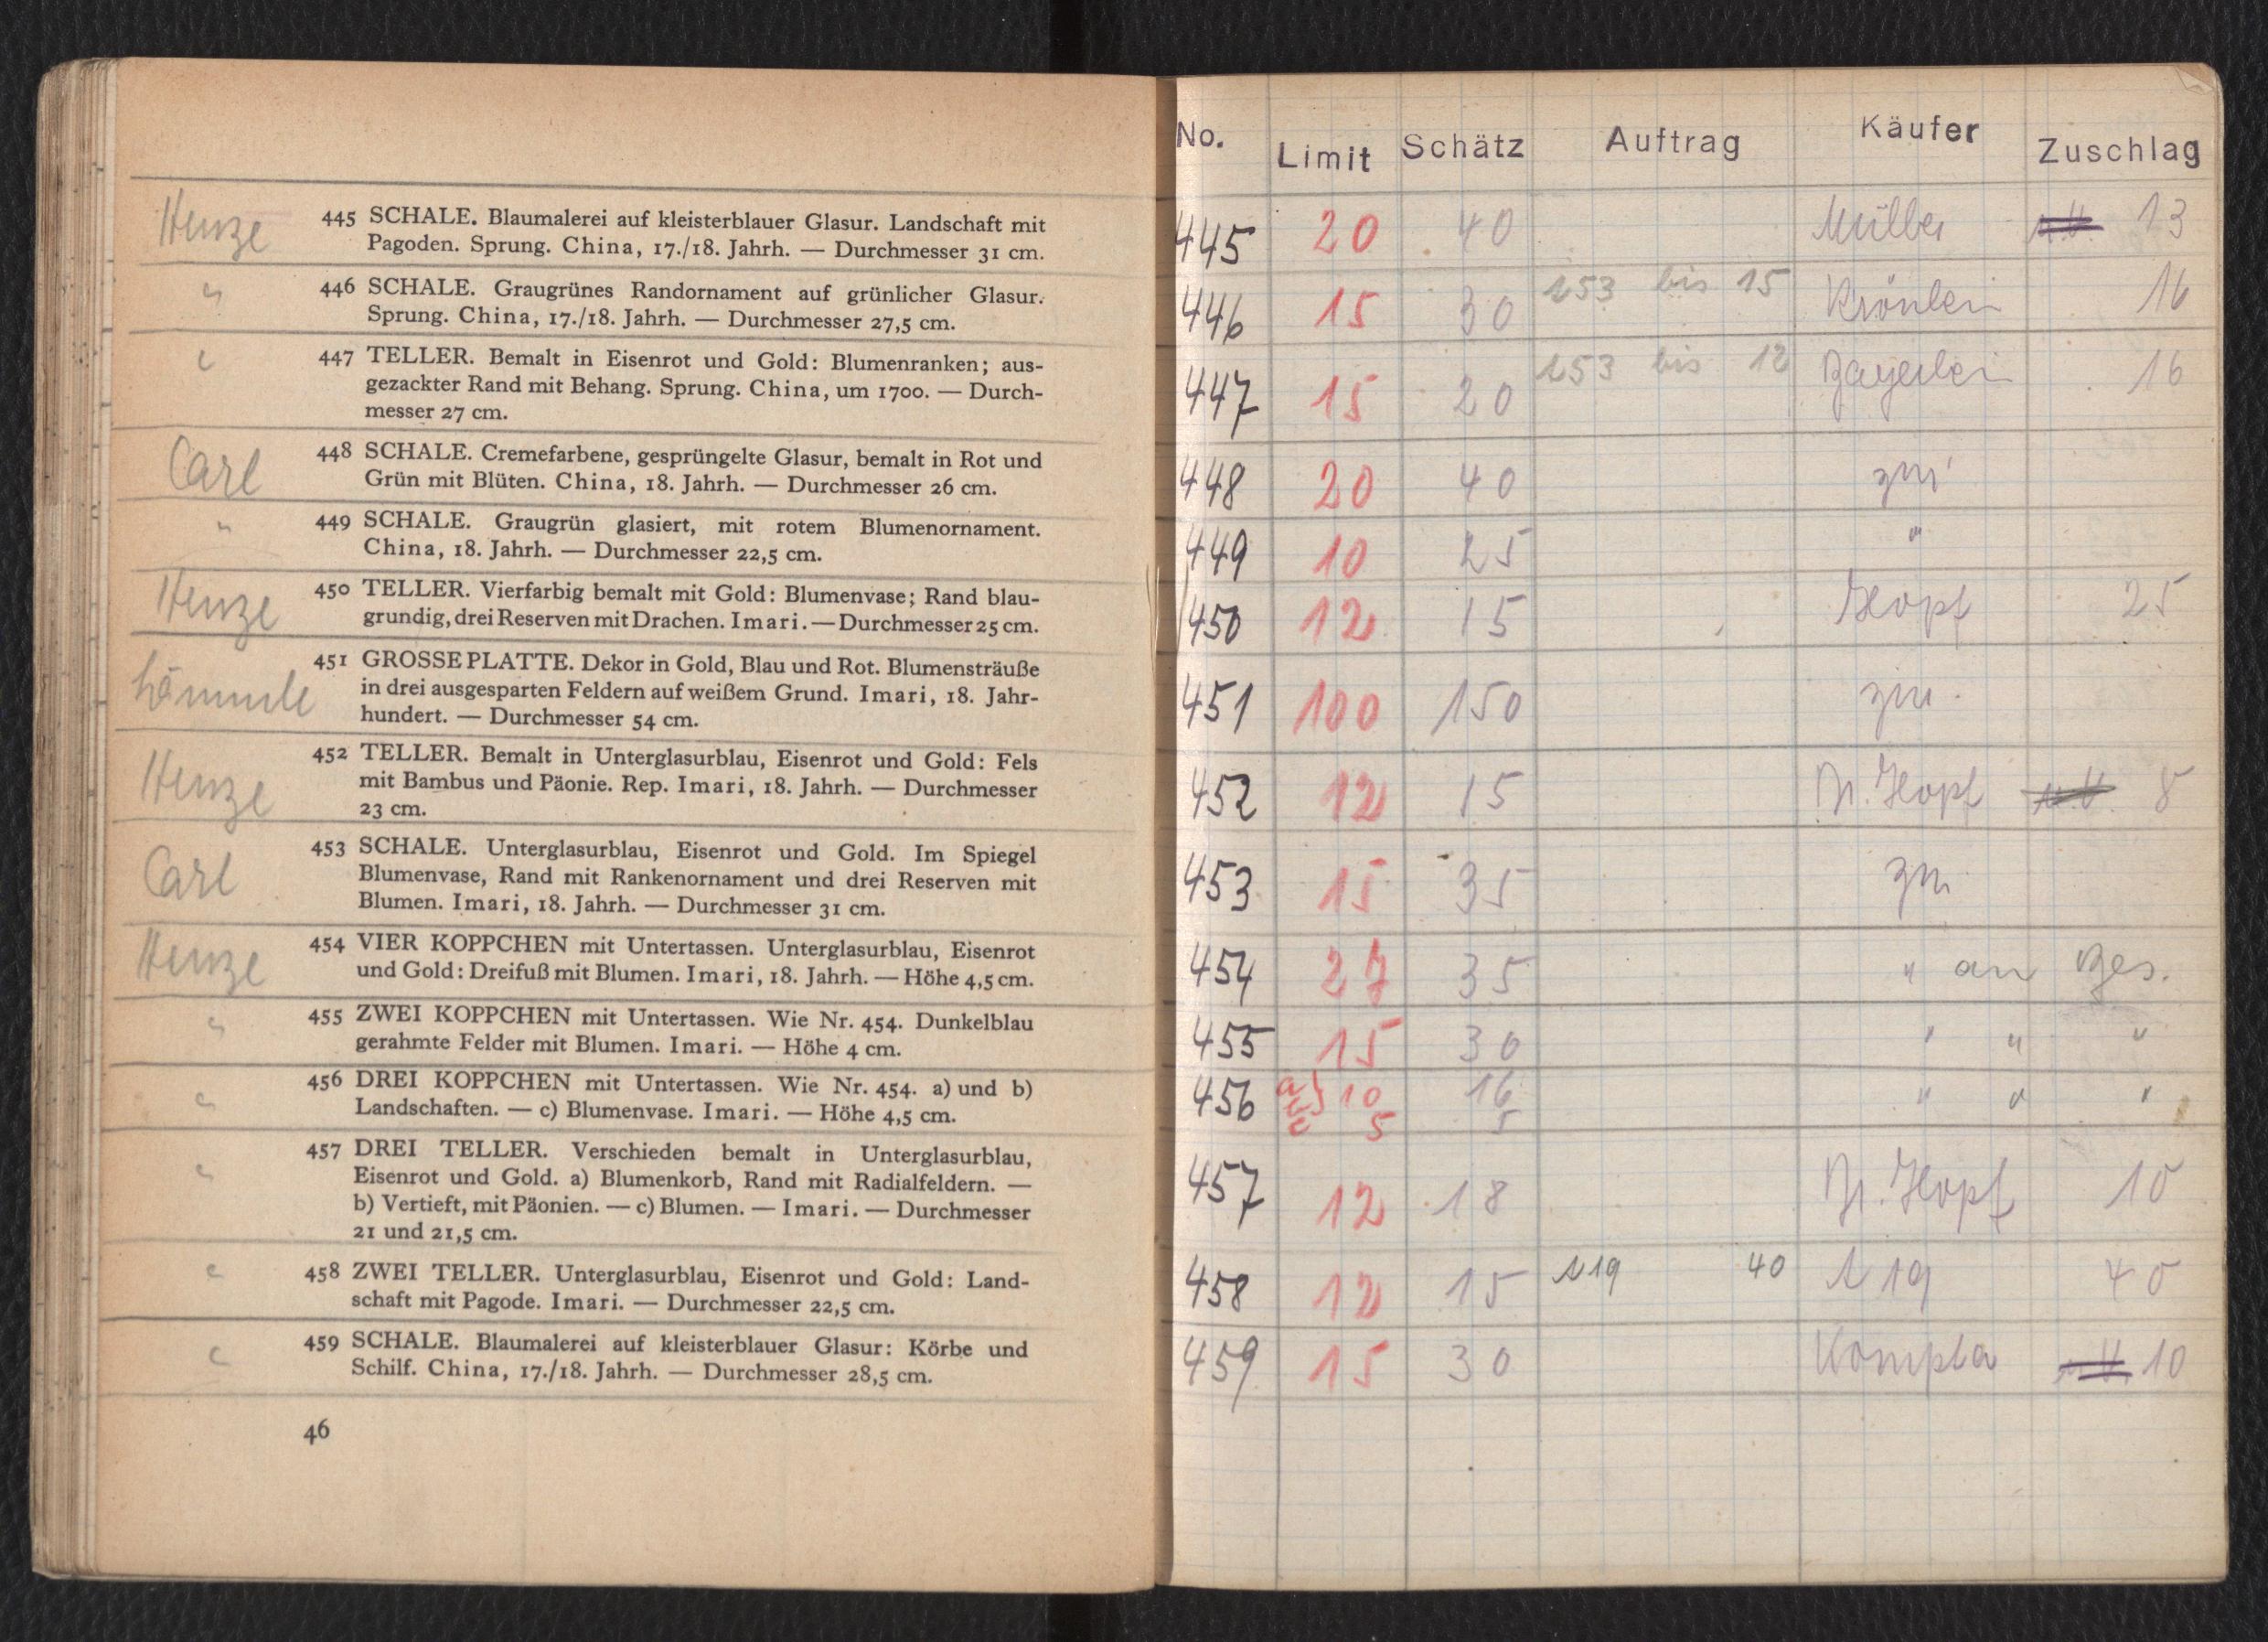 Henze
445 SCHALE. Blaumalerei auf kleisterblauer Glasur. Landschaft mit
Pagoden. Sprung. China, 17./18. Jahrh. — Durchmesser 31 cm.
"
446 SCHALE. Graugrünes Randornament auf grünlicher Glasur.
Sprung. China, 17./18. Jahrh. — Durchmesser 27,5 cm.
447 TELLER. Bemalt in Eisenrot und Gold: Blumenranken; aus-
gezackter Rand mit Behang. Sprung. China, um 1700. — Durch-
messer 27 cm.
Carl
448 SCHALE. Cremefarbene, gesprüngelte Glasur, bemalt in Rot und
Grün mit Blüten. China, 18. Jahrh. — Durchmesser 26 cm.
"
449 SCHALE. Graugrün glasiert, mit rotem Blumenornament.
China, 18. Jahrh. — Durchmesser 22,5 cm.
Henze
450 TELLER. Vierfarbig bemalt mit Gold: Blumenvase; Rand blau-
grundig, drei Reserven mit Drachen. Imari. — Durchmesser 25 cm.
451 GROSSE PLATTE. Dekor in Gold, Blau und Rot. Blumensträuße
in drei ausgesparten Feldern auf weißem Grund. Imari, 18. Jahr-
hundert. — Durchmesser 54 cm.
Henze
452 TELLER. Bemalt in Unterglasurblau, Eisenrot und Gold: Fels
mit Bambus und Päonie. Rep. Imari, 18. Jahrh. — Durchmesser
23 cm.
Carl
453 SCHALE. Unterglasurblau, Eisenrot und Gold. Im Spiegel
Blumenvase, Rand mit Rankenornament und drei Reserven mit
Blumen. Imari, 18. Jahrh. — Durchmesser 31 cm.
Henze
454 VIER KOPPCHEN mit Untertassen. Unterglasurblau, Eisenrot
und Gold: Dreifuß mit Blumen. Imari, 18. Jahrh. — Höhe 4,5 cm.
"
455 ZWEI KOPPCHEN mit Untertassen. Wie Nr. 454. Dunkelblau
gerahmte Felder mit Blumen. Imari. — Höhe 4 cm.
456 DREI KOPPCHEN mit Untertassen. Wie Nr. 454. a) und b)
Landschaften. — c) Blumenvase. Imari. — Höhe 4,5 cm.
457 DREI TELLER. Verschieden bemalt in Unterglasurblau,
Eisenrot und Gold. a) Blumenkorb, Rand mit Radialfeldern. —
b) Vertieft, mit Päonien. — c) Blumen. — Imari. — Durchmesser
21 und 21,5 cm.
458 ZWEI TELLER. Unterglasurblau, Eisenrot und Gold: Land-
schaft mit Pagode. Imari. — Durchmesser 22,5 cm.
459 SCHALE. Blaumalerei auf kleisterblauer Glasur: Körbe und
Schilf. China, 17./18. Jahrh. — Durchmesser 28,5 cm.
46
No. Limit Schätz Auftrag Käufer Zuschlag
445 20 40 Müller 13
446 15 30 253 bis 15 Krönlein 16
447 15 20 253 bis 12 Bayerlein 16
448 20 40
449 10 25 "
450 12 15 Hopf 25
451 100 150
452 12 15 Hopf 8
453 15 35
454 27 35 " an Bes.
455 15 30 " " "
456 10 16 " " "
5 5
457 12 18 Hopf 10
458 12 15 40 40
459 15 30 10